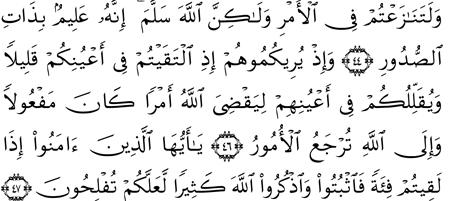 وَلَتَنَـٰزَعْتُمْ فِى ٱلْأَمْرِ وَلَـٰكِنَّ ٱللَّهَ سَلَّمَ ۗ إِنَّهُۥ عَلِيمٌۢ بِذَاتِ
ٱلصُّدُورِ ﴿٤٤﴾ وَإِذْ يُرِيكُمُوهُمْ إِذِ ٱلْتَقَيْتُمْ فِىٓ أَعْيُنِكُمْ قَلِيلًا
وَيُقَلِّلُكُمْ فِىٓ أَعْيُنِهِمْ لِيَقْضِىَ ٱللَّهُ أَمْرًا كَانَ مَفْعُولًا
وَإِلَى ٱللَّهِ تُرْجَعُ ٱلْأُمُورُ ﴿٤٦﴾ يَـٰٓأَيُّهَا ٱلَّذِينَ ءَامَنُوٓا۟ إِذَا
لَقِيتُمْ فِئَةً فَٱثْبُتُوا۟ وَٱذْكُرُوا۟ ٱللَّهَ كَثِيرًا لَّعَلَّكُمْ تُفْلِحُونَ ﴿٤٧﴾